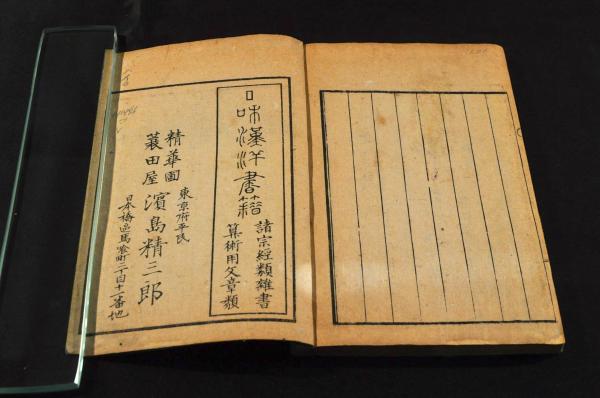 和漢洋書籍
諸宗經類雜書
算術用文章類
東京府平民
精華園
蓑田屋
濱島精三郎
日本橋區馬喰町二丁目十一番地